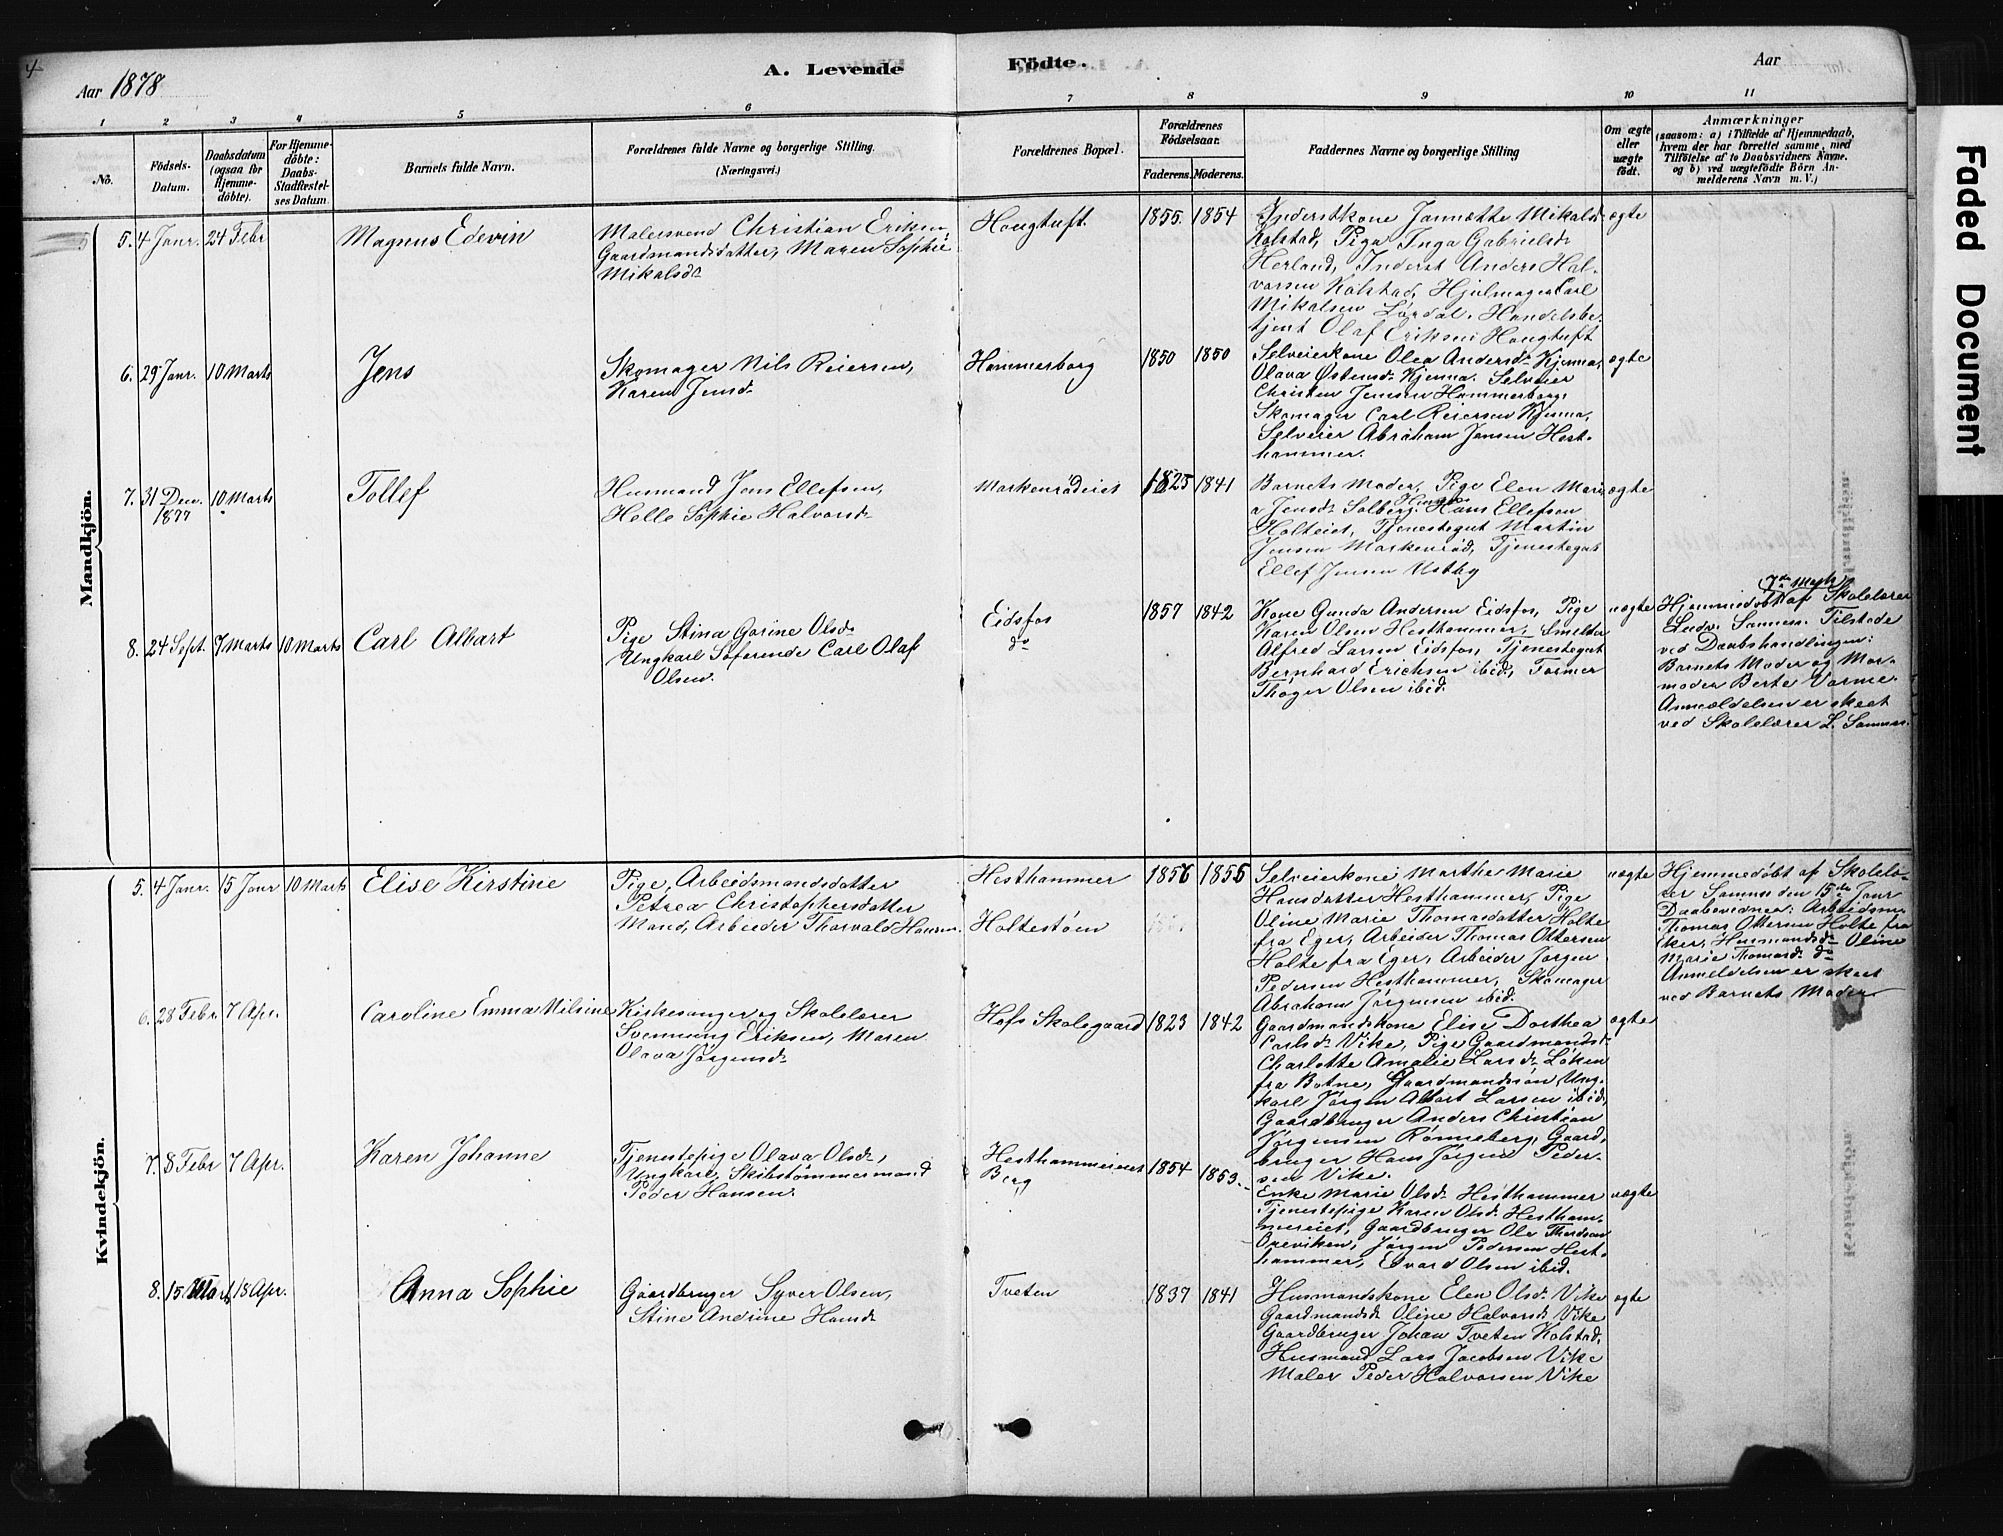 4
Aar 1878
A. Levende Födte.
Aar
1 2 3 4 5 6 7 8 9 10 11
No.
Födsels-
Datum.
Daabsdatum
(ogsaa for
Hjemme-
döbte).
For Hjemme-
döbte:
Daabs-
Stadfæstel-
ses Datum.
Barnets fulde Navn.
Forældrenes fulde Navne og borgerlige Stilling.
(Næringsvei.)
Forældrenes Bopæl.
Forældrenes
Födselsaar.
Faderens. Moderens.
Faddernes Navne og borgerlige Stilling
Om ægte
eller
uægte
födt.
Anmærkninger
(saasom: a) i Tilfælde af Hjemmedaab,
hvem der har forrettet samme, med
Tilföielse af to Daabsvidners Navne,
og b) ved uægtefödte Börn An-
melderens Navn m. V.)
Faded Document
Mandkjön.
5. 4 Janr. 24 Febr
Magnus Edevin
Malersvend Christian Eriksen
Gaardmandsdatter, Maren Sophie
Mikalsdr
Hougtuft.
1855. 1854
Inderstkone Jannette Mikalsd
Kolstad, Pige Inga Gabrielsdr
Herland, Inderst Anders Hal-
vorsen Kolstad, Hjulmager Carl
Mikalsen Lørdal. Handelsbe-
tjent Olaf Eriksen Hougtuft
ægte
6. 29 Janr. 10 Marts
Jens
Skomager Nils Reiersen,
Karen Jensdr
Hammerborg
1850 1850
Selveierkone Olea Andersdr Kjenna,
Olava Østensdr Kjenna. Selveier
Christen Jensen Hammerborg,
Skomager Carl Reiersen Kjenna,
Selveier Abraham Jensen Hest-
hammer.
ægte
7. 31 Dec. 1877 10 Marts
Tollef
Husmand Jens Ellefsen,
Helle Sophie Halvorsdr
Markenrødeiet
1825 1841
Barnets Moder, Pige Elen Mari-
a Jensdr Solberg. Hans Ellefsen
Holteiet, Tjenestegut Martin
Jensen Markenrød, Tjenestegut
Ellef Jensen Ustby
ægte
8. 24 Sept. 7 Marts 10 Marts
Carl Albart
Pige Stina Gorine Olsdr
Ungkarl Søfarende Carl Olaf
Olsen.
Eidsfos
do
1857 1842
Kone Gunda Andersen Eidsfos, Pige
Karen Olsen Hesthammer, Smelter
Alfred Larsen Eidsfos, Tjenestegut
Bernhard Erichsen ibid, Former
Thøger Olsen ibid.
uægte
7de Marts
Hjemmedøbt af Skolelærer
Ludv. Sannes. Tilstede
ved Daabshandlingen:
Barnets Moder og Mor-
moder Berte Varme.
Anmeldelsen er skeet
ved Skolelærer L. Sannes.
Kvindekjön.
5. 4 Janr. 15 Janr 10 Marts
Elise Kirstine
Pige, Arbeidsmandsdatter
Petrea Christophersdatter
Mand, Arbeider Thorvald Hansen.
Hesthammer
Holtestøen
1856 1855
Selveierkone Marthe Marie
Hansdatter Hesthammer, Pige
Oline Marie Thomasdatter Holte
fra Eger, Arbeider Thomas Ottersen
Holte fra Eger, Arbeider Jørgen
Pedersen Hesthammer, Skomager
Abraham Jørgensen ibid.
uægte
Hjemmedøbt af Skolelæ-
rer Sannes den 15de Janr
Daabsvidner: Arbeidsm.
Thomas Ottersen Holte fra
Eker, Husmandsdr Oline
Marie Thomasdr do
Anmeldelsen er skeet
ved Barnets Moder.
6. 28 Febr 7 Apr.
Caroline Emma Nilsine
Kirkesanger og Skolelærer
Svennung Eriksen, Maren
Olava Jørgensdr
Hofs Skolegaard
1823 1842
Gaardmandskone Elise Dorthea
Carlsdr Vike, Pige Gaardmandsd
Charlotte Amalie Larsdr Løken
fra Botne, Gaardmandssøn Ung-
karl Jørgen Albart Larsen ibid,
Gaardbruger Anders Christian
Jørgensen Rønneberg, Gaard-
bruger Hans Jørgen Peder-
sen Vike.
ægte
7. 8 Febr 7 Apr.
Karen Johanne
Tjenestepige Olava Olsdr,
Ungkarl, Skibstømmermand
Peder Hansen.
Hesthammereiet
Berg
1854 1853.
Enke Marie Olsdr Hesthammer
Tjenestepige Karen Olsdr Hestham-
mereiet, Gaardbruger Ole Thordsen
Oreviken, Jørgen Pedersen Hest-
hammer, Edvard Olsen ibid.
uægte
8. 15 Marts 18 Apr.
Anna Sophie
Gaardbruger Syver Olsen,
Stine Andrine Hansdr
Tveten
1837 1841
Husmandskone Elen Olsdr Vike
Gaardmandsdr Oline Halvorsdr Vike
Gaardbruger Johan Tveten Kolstad,
Husmand Lars Jacobsen Vike
Maler Peder Halvorsen Vike
ægte